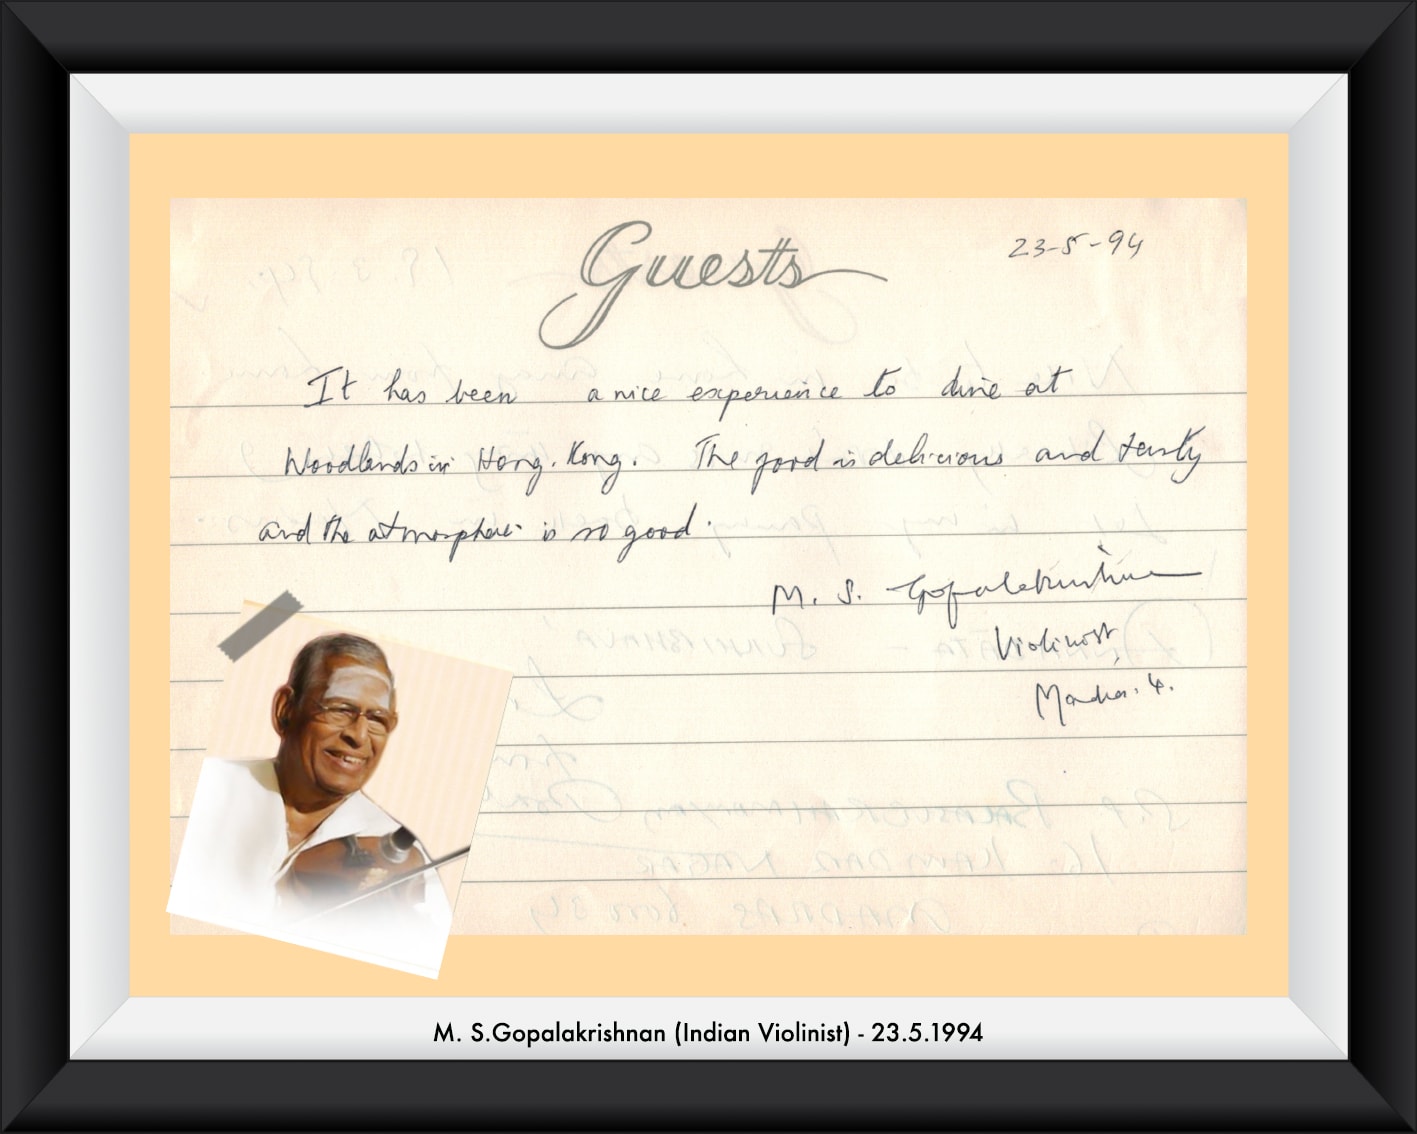 Guests
23-5-94
It has been a nice experience to dine at
Woodlands in Hong.Kong. The food is delicious and tasty
and the atmosphere is so good.
M. S. Gopalakrishnan
Violinist,
Madras.4.
M. S.Gopalakrishnan (Indian Violinist) - 23.5.1994